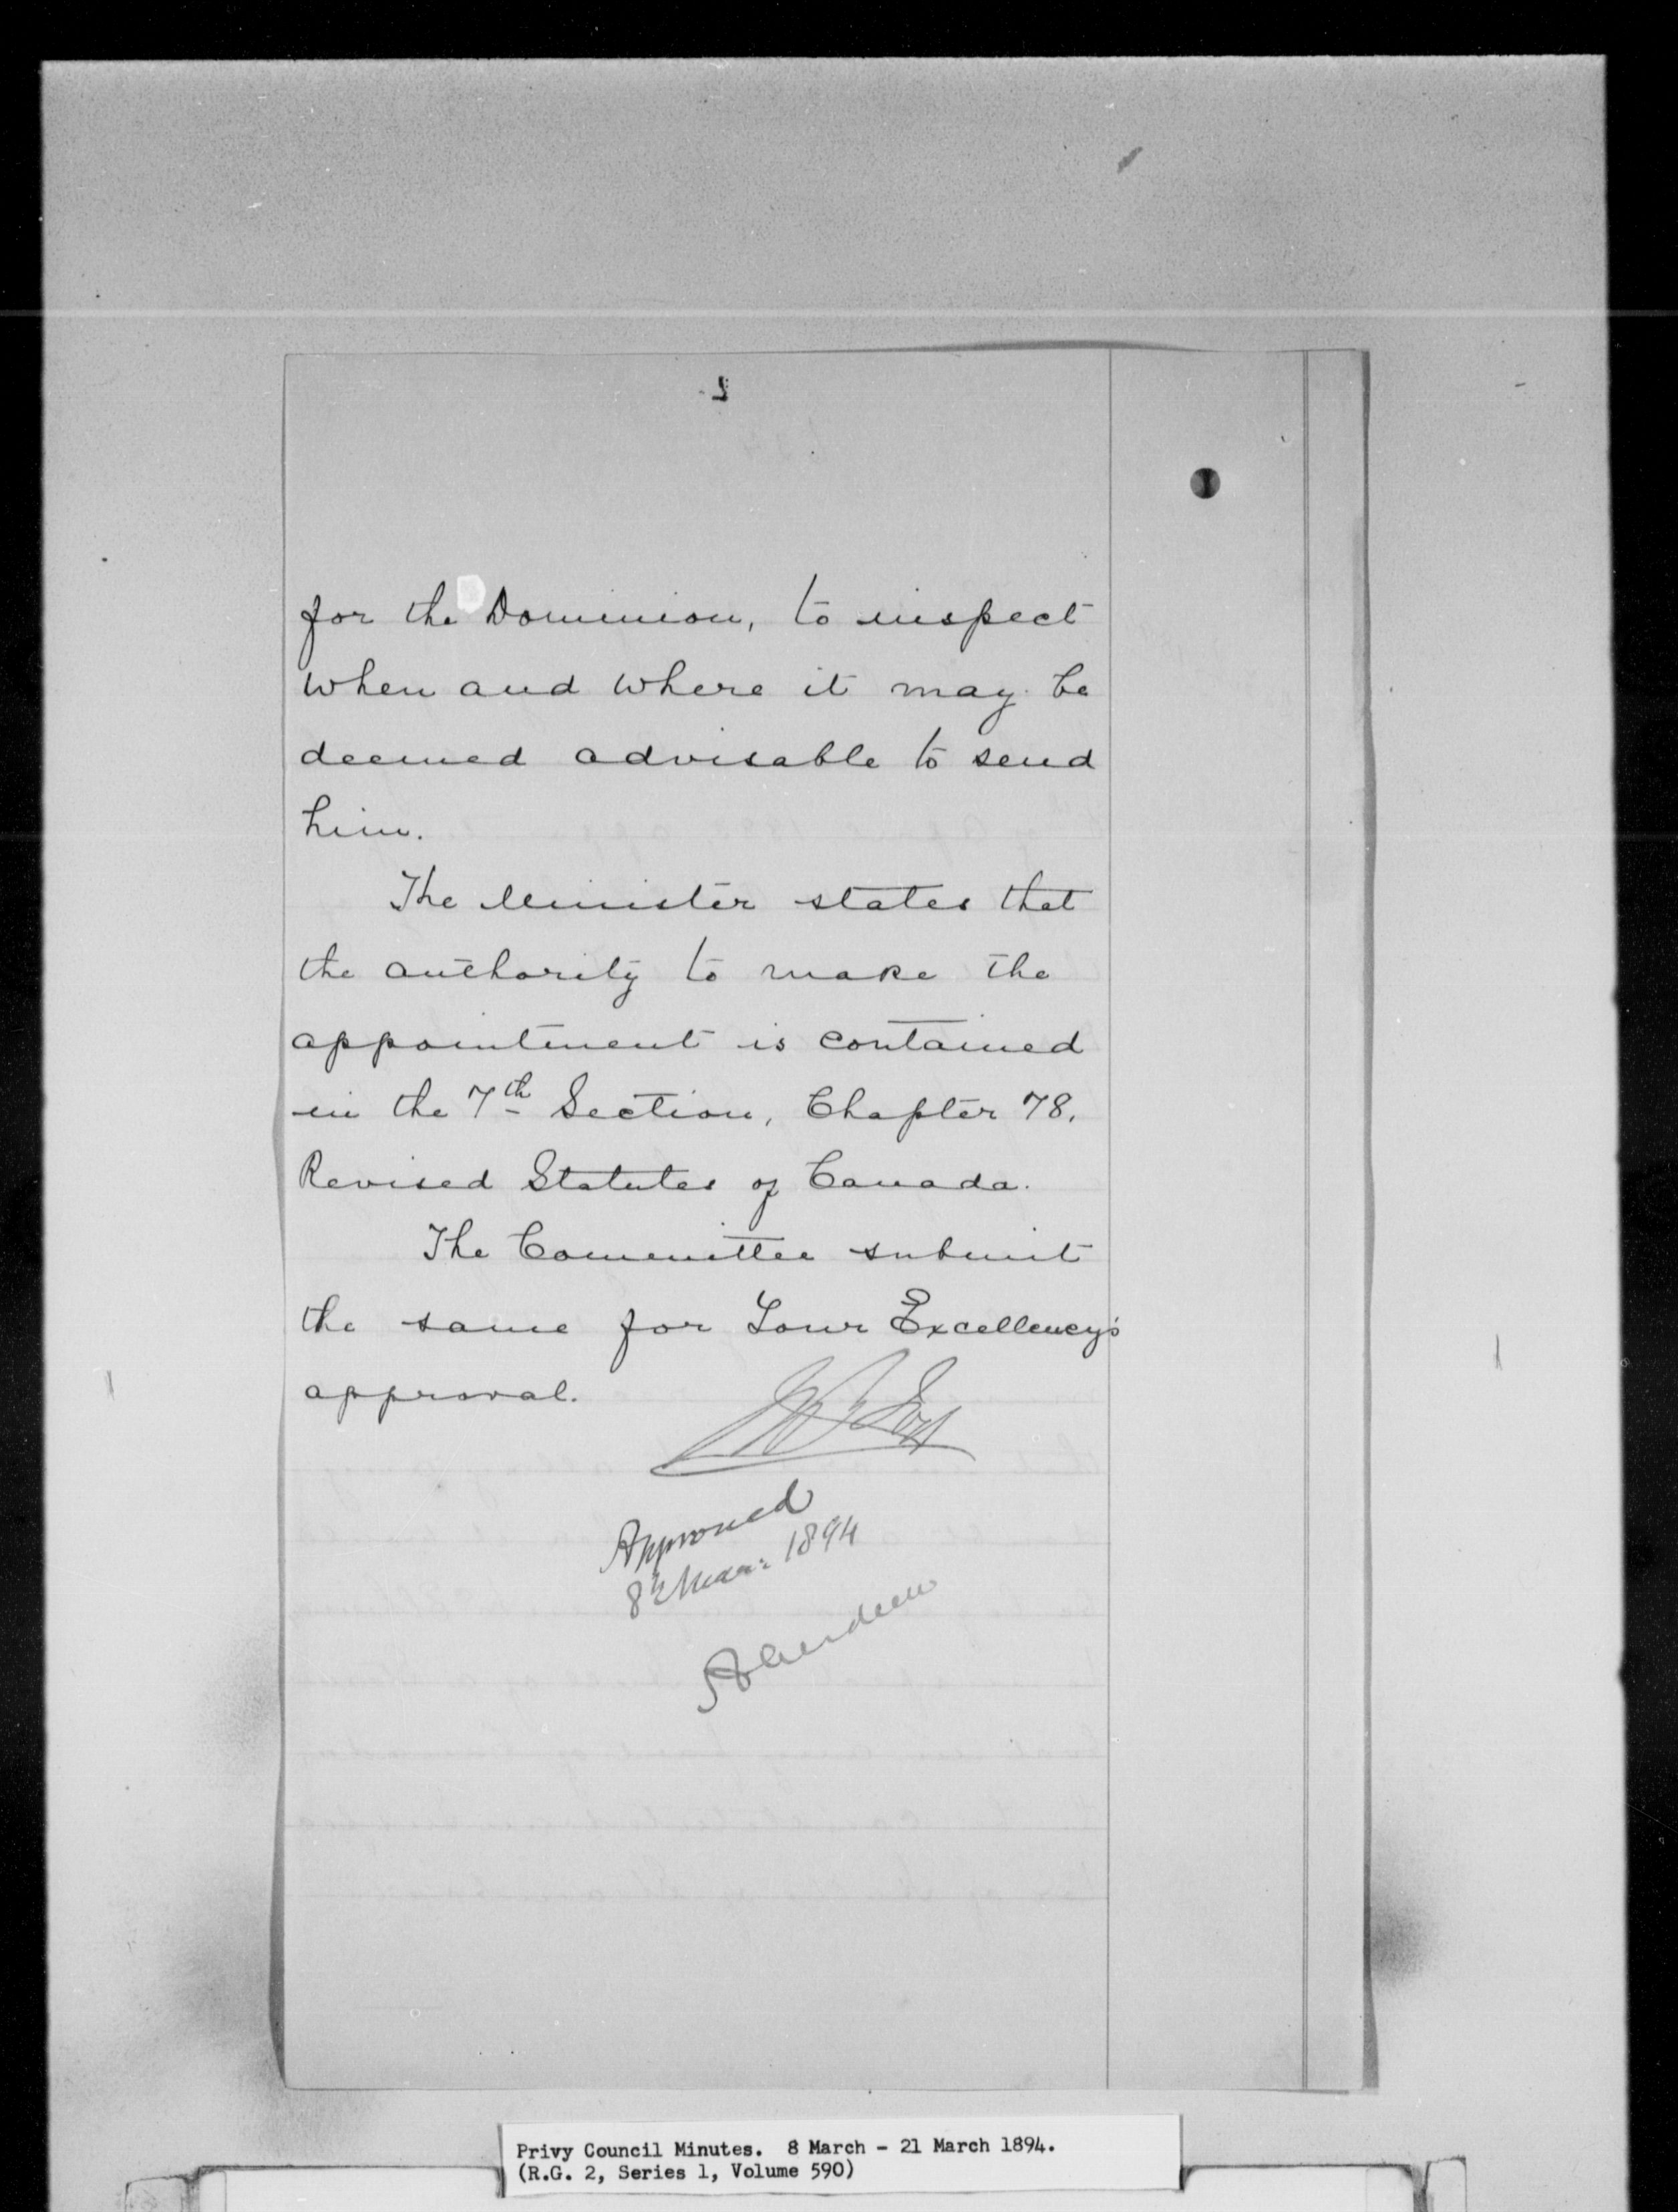 for the Dominion, to inspect
when and where it may be
deemed advisable to send
him.
The Minister states that
the authority to make the
appointment is contained
in the 7th Section, Chapter 78.
Revised Statutes of Canada.
The Committee submit
the same for Your Excellency's
approval.
Approved
8th Mar: 1894
Aberdeen
Privy Council Minutes. 8 March - 21 March 1894.
(R.G. 2, Series 1, Volume 590)